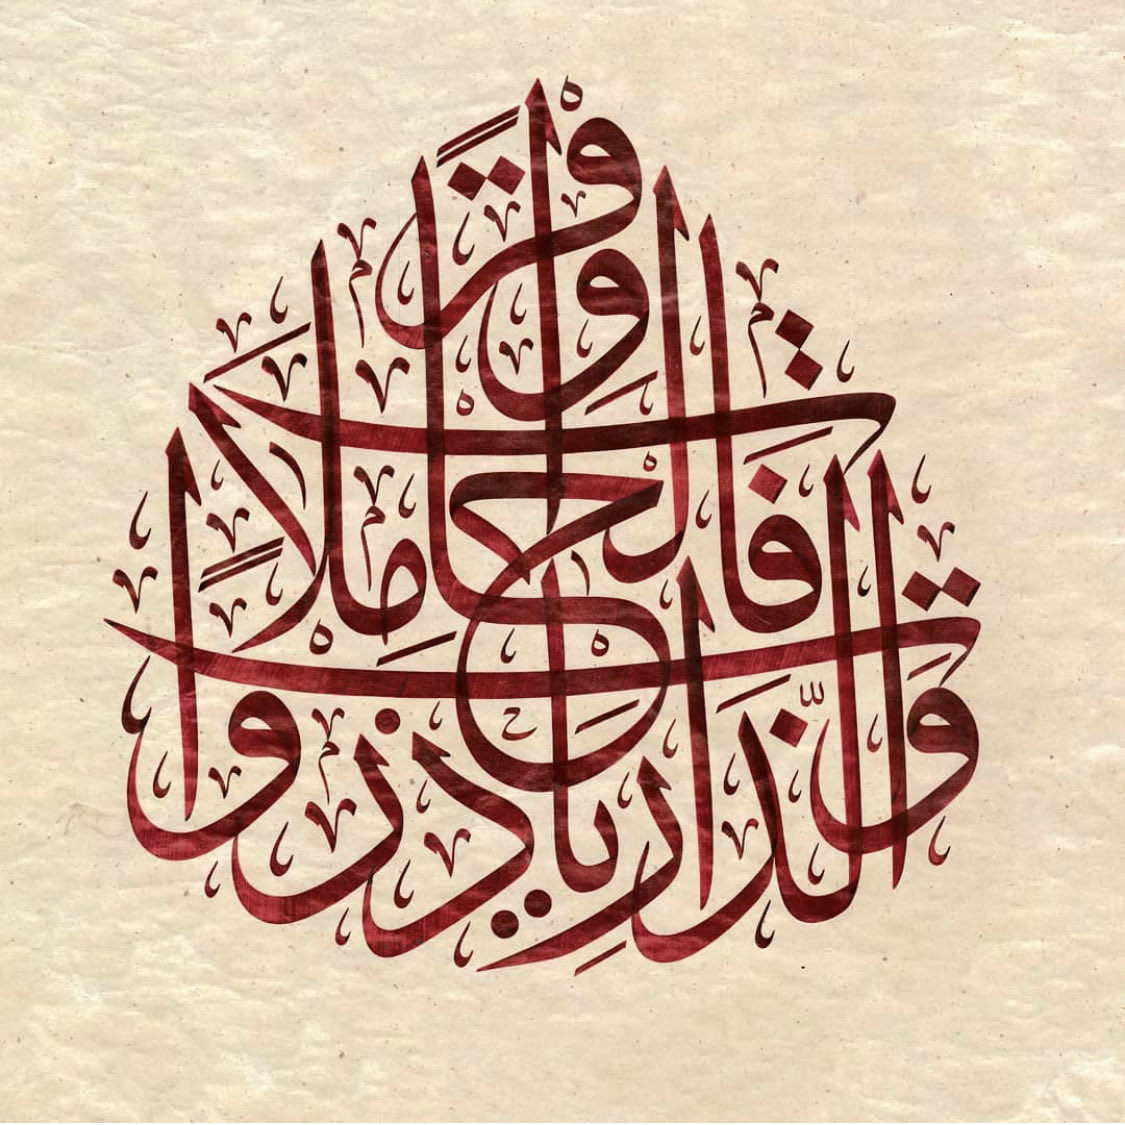 وَالذَّارِيَاتِ ذَرْوًا
فَالْحَامِلَاتِ وِقْرًا